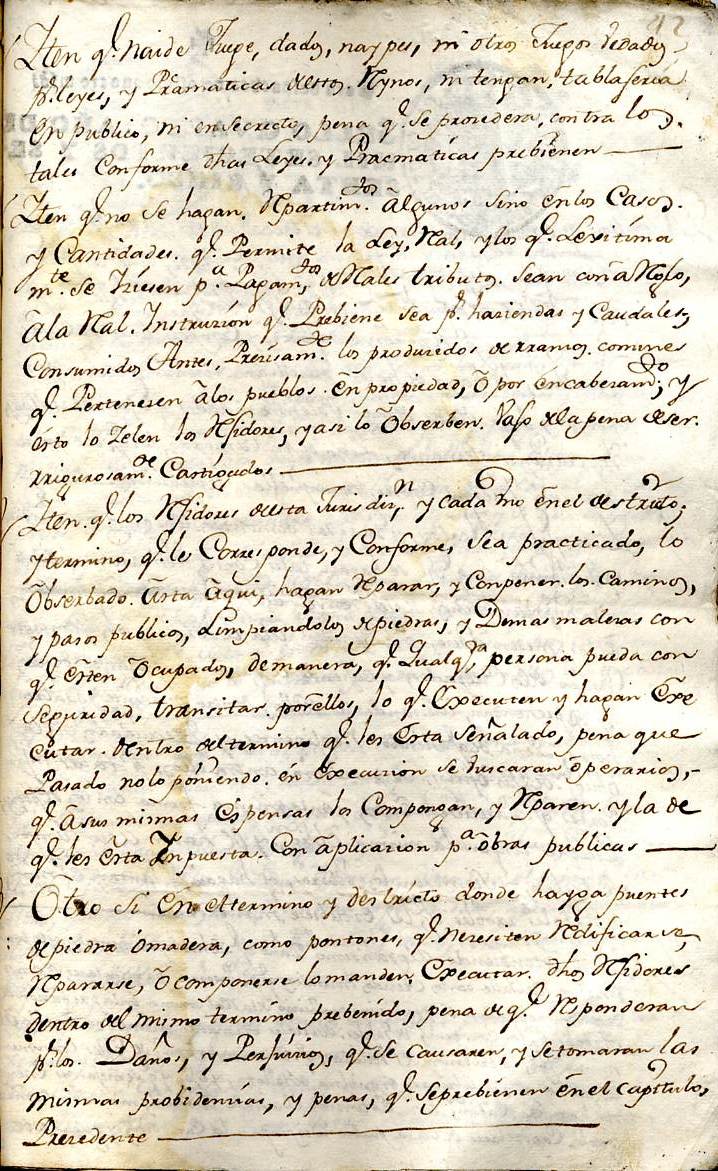 42
Yten q.e naide Juege, dados, naypes, ni otros Juegos vedados
p.r leyes, y Pramaticas destos Rynos, ni tengan, tablaseria
en publico, ni en secreto, pena q.e se prozedera, contra los
tales conforme dhas Leyes, y Pracmaticas prebienen
Yten q.e no se hagan, Rpartim.tos algunos sino en los Casos
y Cantidades, q.e Permite la Ley, Ral, y los q.e Lexitima
m.te se hiziesen p.a Pagam.tos de Rales tributos, sean con a Rglo,
a la Ral. Instruzion q.e Prebiene sea p.r haziendas y Caudales,
Consumidos Antes, Prezisam.te los produzidos de rramos comunes
q.e Pertenesen a los pueblos en propiedad, o por encabezam.to; y
esto lo Zelen los Rxidores, y asi lo Obserben, vajo de la pena de ser
rrigurosam.te Castigados
Yten q.e los Rxidores desta Jurisdiz.n y cada Vno en el destrito,
y termino, q.e le Corresponde, y Conforme, sea practicado, lo
Obserbado asta aqui, hagan Rparar, y Conpener los Caminos,
y pasos publicos, Limpiandolos de piedras, y Demas malezas con
q.e esten Ocupados, de manera, q.e Qualq.ra persona pueda con
seguridad, transitar por ellos, lo q.e Executen y hagan Exe
cutar dentro del termino q.e les Esta señalado, pena que
Pasado no lo poniendo en Execuzion se buscaran operarios,
q.e a sus mismas Espensas los Compongan, y Rparen y la de
q.e les Esta Ynpuesta Con aplicazion p.a obras publicas
Otro si En el termino y destricto donde hayga puentes
de piedra o madera, como pontones, q.e nezesiten Rdificarse,
Rpararse, o componerse lo manden Executar dhos Rxidores
dentro del mismo termino prebenido, pena de q.e Rsponderan
p.r los Daños, y Perjuizios, q.e se causaren, y se tomaran las
mismas probidenzias, y penas, q.e se prebienen en el capitulo,
Prezedente